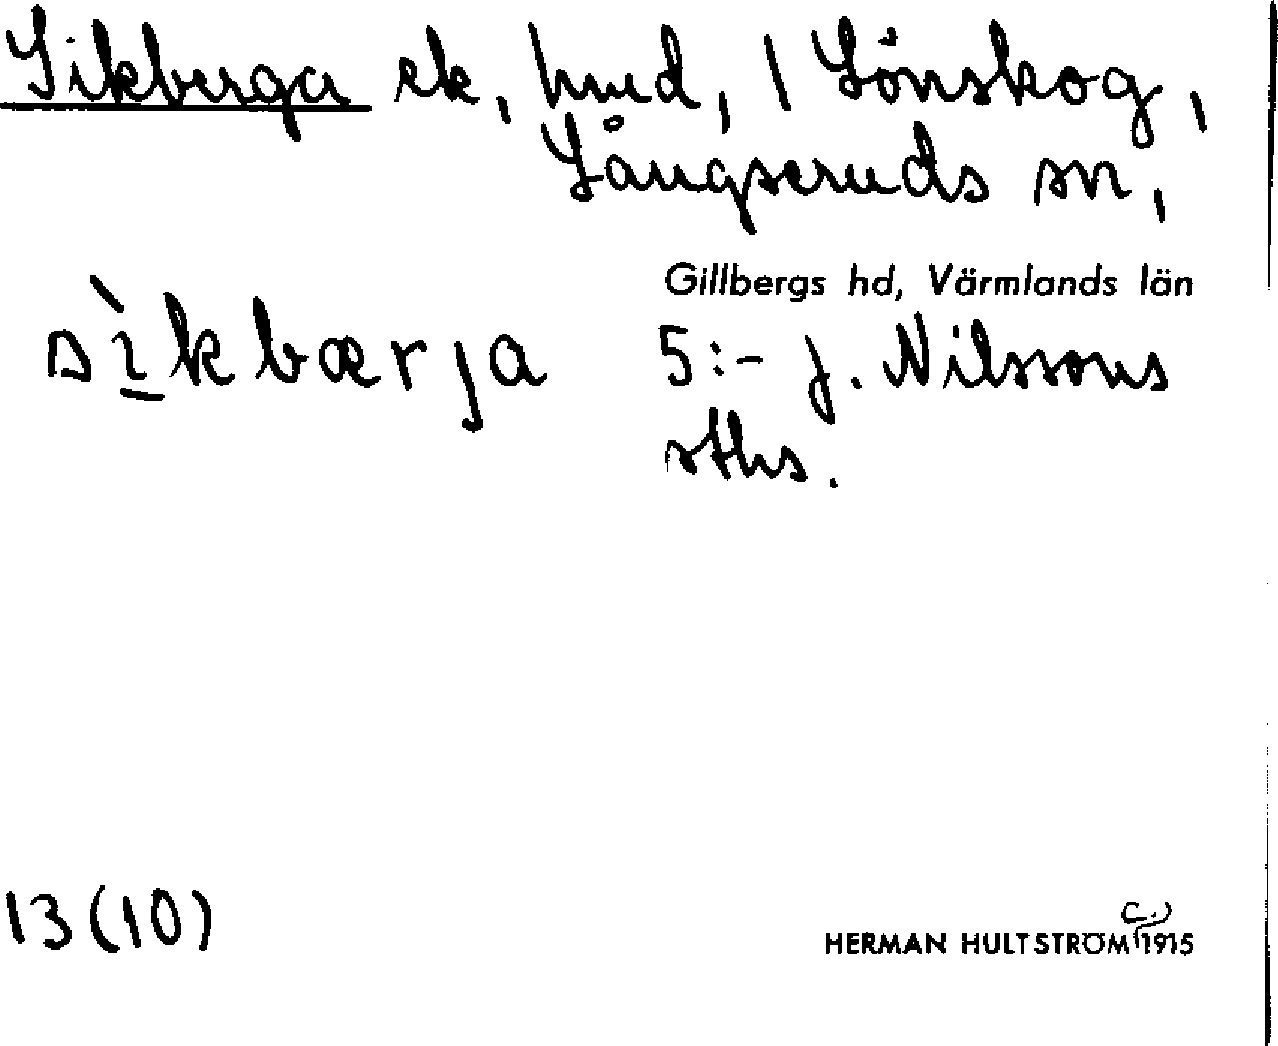 Sikberga ek, hmd, 1 Lönskog,
Långseruds sn,
Gillbergs hd, Värmlands län
sìkbærja
5:- J. Nilssons
sths.
13(10)
HERMAN HULTSTRÖM (c.) 1915